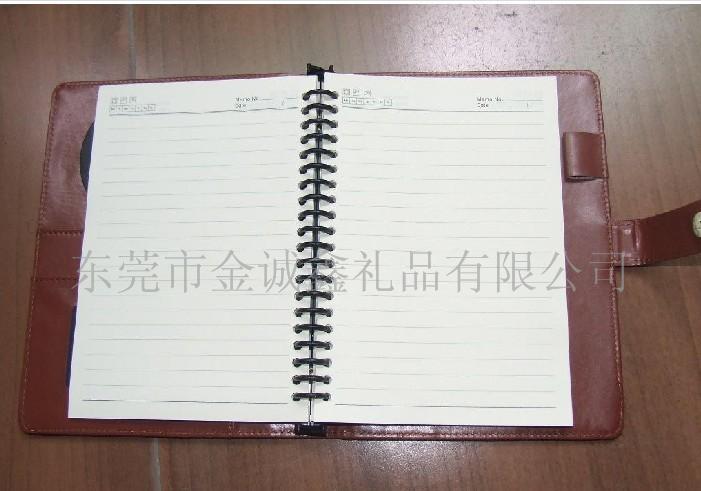 Memo No.
Date
Memo No.
Date
东莞市金诚鑫礼品有限公司